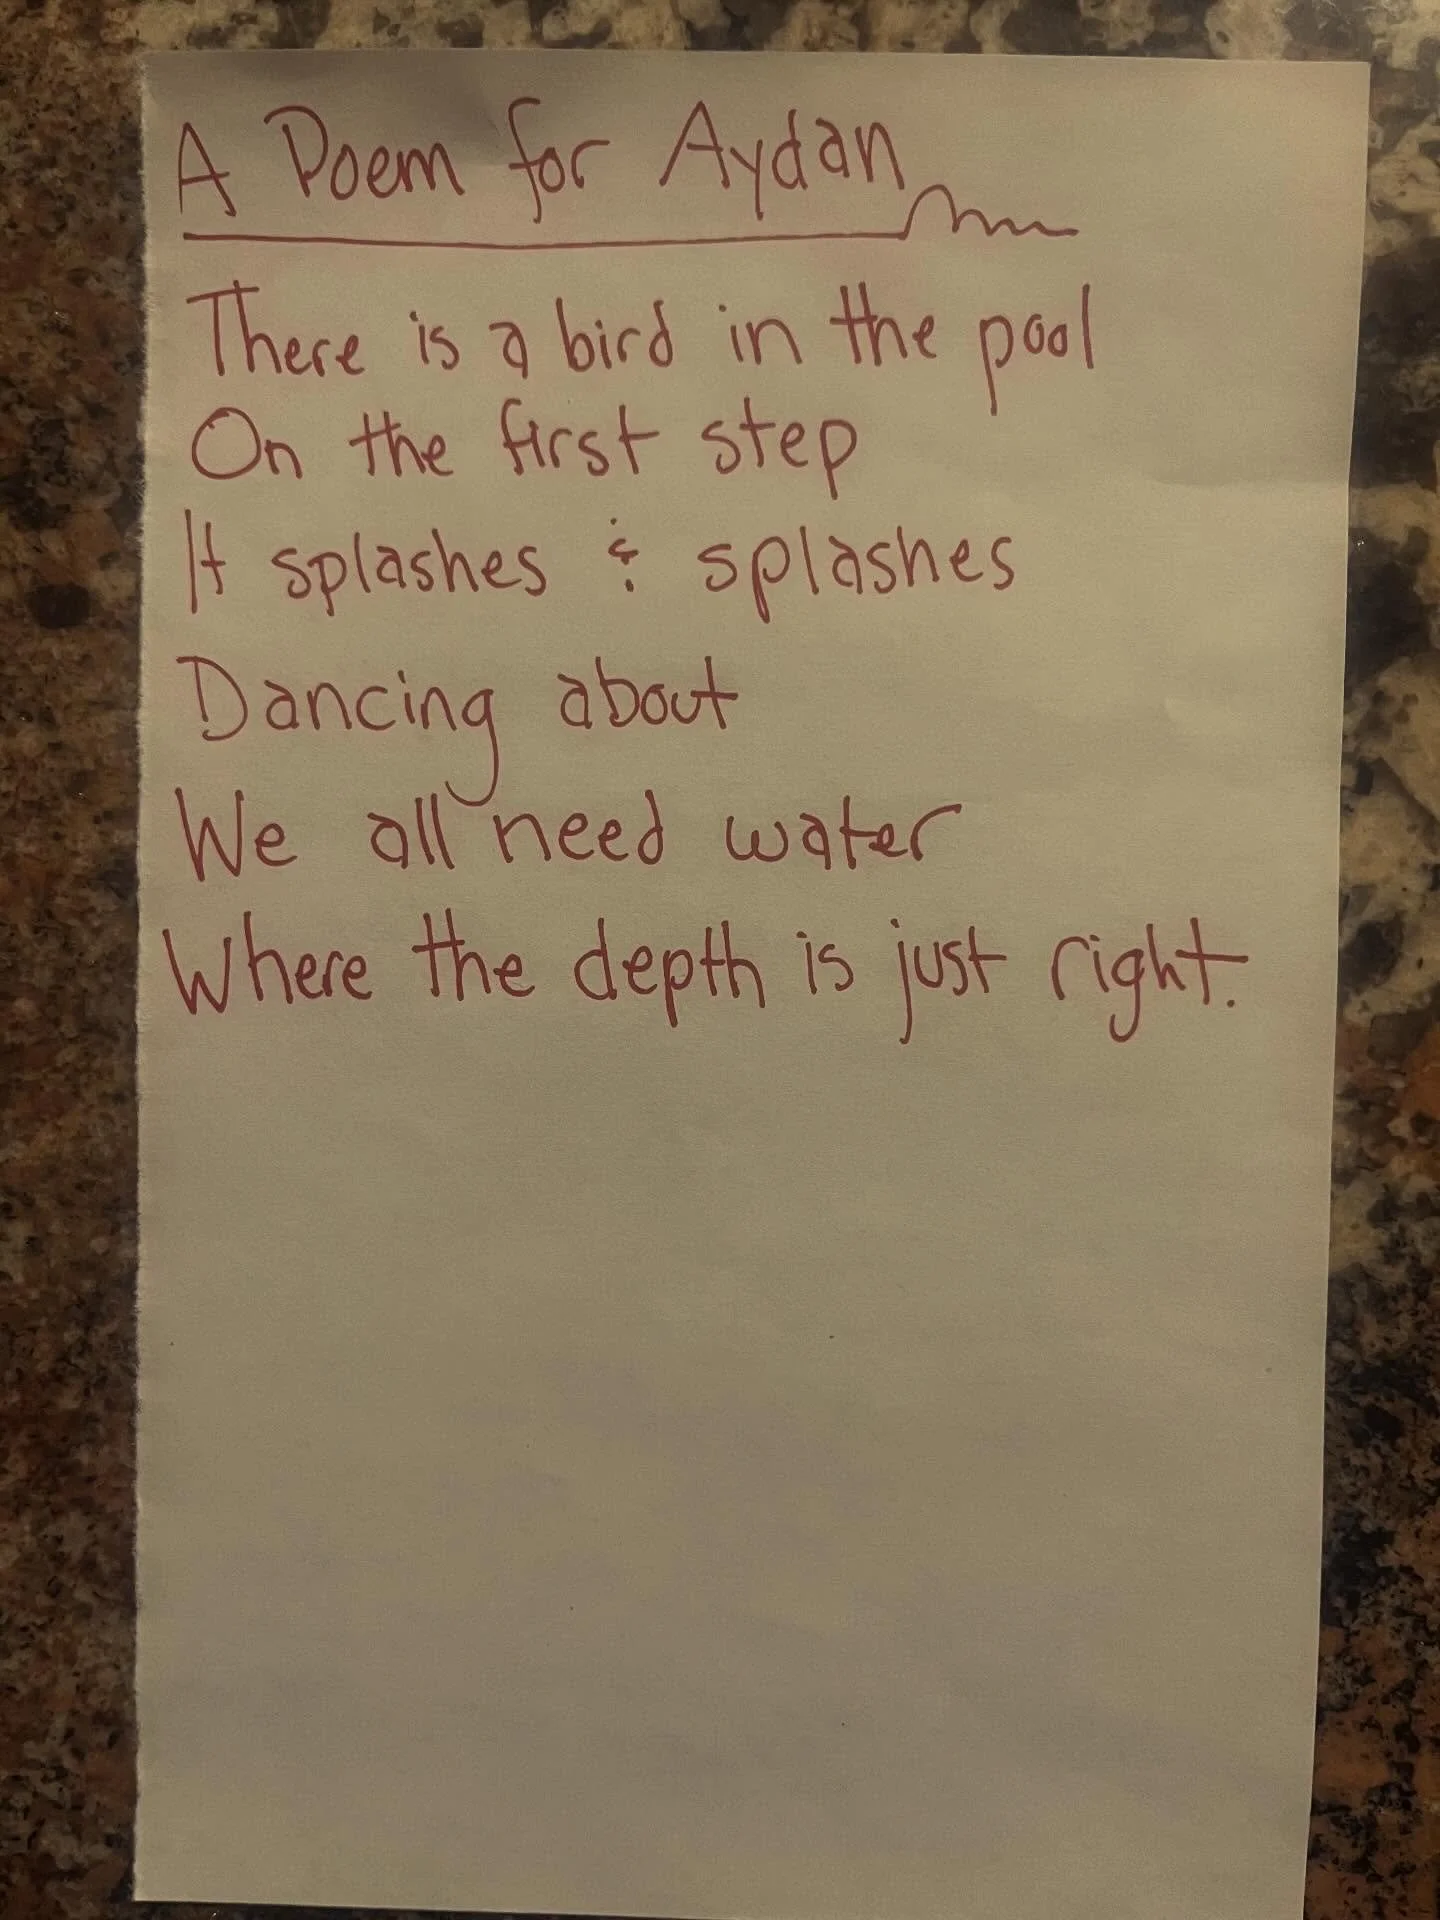 A Poem for Aydan
There is a bird in the pool
On the first step
It splashes & splashes
Dancing about
We all need water
Where the depth is just right.